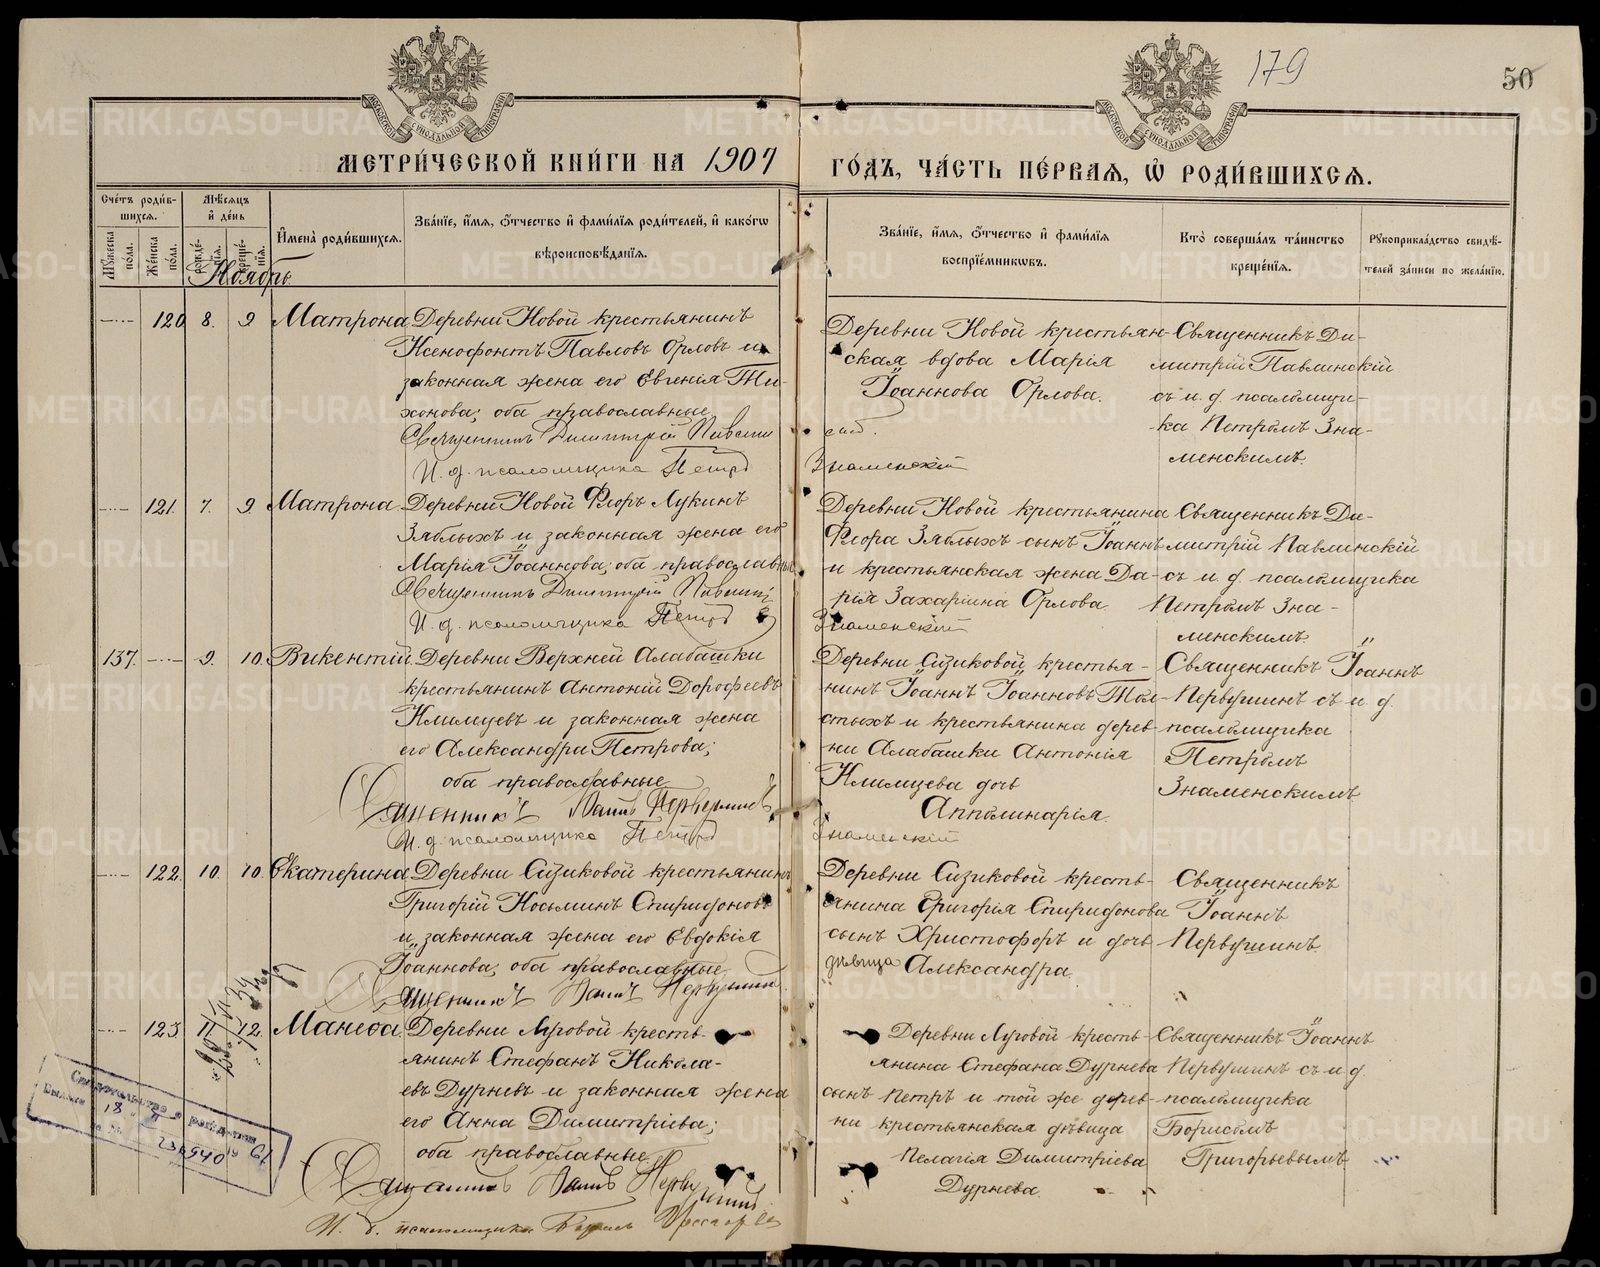 179
50
МЕТРИ́ЧЕСКОЙ КНИ́ГИ НА 1907 ГО́ДЪ, ЧА́СТЬ ПЕ́РВАЯ, Ѽ РОДИ́ВШИХСЯ.
Сче́тъ роди́в-
шихся.
Му́жеска по́ла.
Же́нска по́ла.
Мѣ́сяцъ
и́ де́нь
рожде́нїя.
креще́нїя.
И҆мена̀ роди́вшихся.
Зва́нїе, и҆́мя, ѻ҆́тчество и҆ фами́лїя роди́телей, и҆ како́гѡ
вѣроисповѣ́данїя.
Зва́нїе, и҆́мя, ѻ҆́тчество и҆ фами́лїя
воспрїе́мникѡвъ.
Кто̀ соверша́лъ та́инство
креще́нїя.
Рꙋкоприкла́дство свидѣ́-
телей за́писи по жела́нїю.
Ноябрь
120 8. 9 Матрона
Деревни Новой крестьянинъ
Ксенофонтъ Павловъ Орловъ и
законная жена его Евгенія Ти-
хонова; оба православные
Священникъ Димитрій Павлин
И. д. псаломщика Петръ
Деревни Новой крестьян-
ская вдова Марія
Іоаннова Орлова.
скій.
Знаменскій
Священникъ Ди-
митрій Павлинскій
съ и. д. псаломщи-
ка Петромъ Зна-
менскимъ.
121. 7. 9 Матрона
Деревни Новой Флоръ Лукинъ
Зяблыхъ и законная жена его
Марія Іоаннова; оба православные
Священникъ Димитрій Павлинскій
И. д. псаломщика Петръ
Деревни Новой крестьянина
Флора Зяблыхъ сынъ Іоаннъ
и крестьянская жена Да-
рія Захаріина Орлова.
Знаменскій
Священникъ Ди-
митрій Павлинскій
съ и. д. псаломщика
Петромъ Зна-
менскимъ.
137. 9. 10. Викентій
Деревни Верхней Алабашки
крестьянинъ Антоній Дорофеевъ
Климцевъ и законная жена
его Александра Петрова;
оба православные
Священникъ Іоаннъ Первушинъ
И. д. псаломщика Петръ
Деревни Сизиковой крестья-
нинъ Іоаннъ Іоанновъ Тол-
стыхъ и крестьянина дерев-
ни Алабашки Антонія
Климцева дочь
Апполинарія.
Знаменскій
Священникъ Іоаннъ
Первушинъ съ и. д.
псаломщика
Петромъ
Знаменскимъ
122. 10. 10. Екатерина
Деревни Сизиковой крестьянинъ
Григорій Косьминъ Спиридоновъ
и законная жена его Евдокія
Іоаннова; оба православные
Священникъ Іоаннъ Первушинъ
Деревни Сизиковой кресть-
янина Григорія Спиридонова
сынъ Христофоръ и дочь
дѣвица Александра.
Священникъ
Іоаннъ
Первушинъ.
123. 11. 12. Манефа.
Деревни Луговой кресть-
янинъ Стефанъ Никола-
евъ Дурневъ и законная жена
его Анна Димитріева;
оба православные
Священникъ Іоаннъ Первушинъ
И. д. псаломщика Борисъ Григорьевъ
Деревни Луговой кресть-
янина Стефана Дурнева
сынъ Петръ и той же дерев-
ни крестьянская дѣвица
Пелагія Димитріева
Дурнева.
Священникъ Іоаннъ
Первушинъ съ и. д.
псаломщика
Борисомъ
Григорьевымъ
Свидетельство о рождении